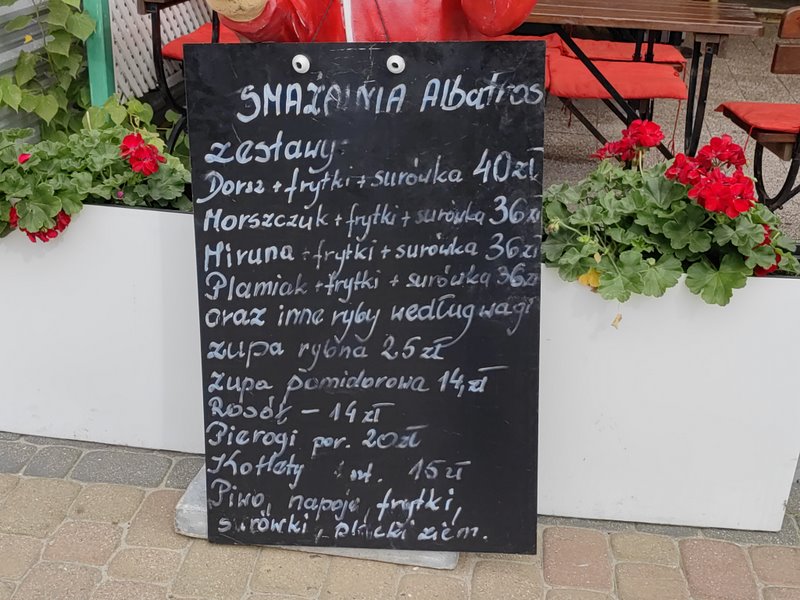 SMAŻALNIA Albatros
zestawy
Dorsz + frytki + surówka 40zł
Morszczuk + frytki + surówka 36zł
Miruna + frytki + surówka 36zł
Plamiak + frytki + surówka 36zł
oraz inne ryby według wagi
zupa rybna 25zł
zupa pomidorowa 14,zł
Rosół - 14zł
Pierogi por. 20zł
Kotlety 1 szt. 15zł
Piwo, napoje, frytki,
surówki, placki ziem.